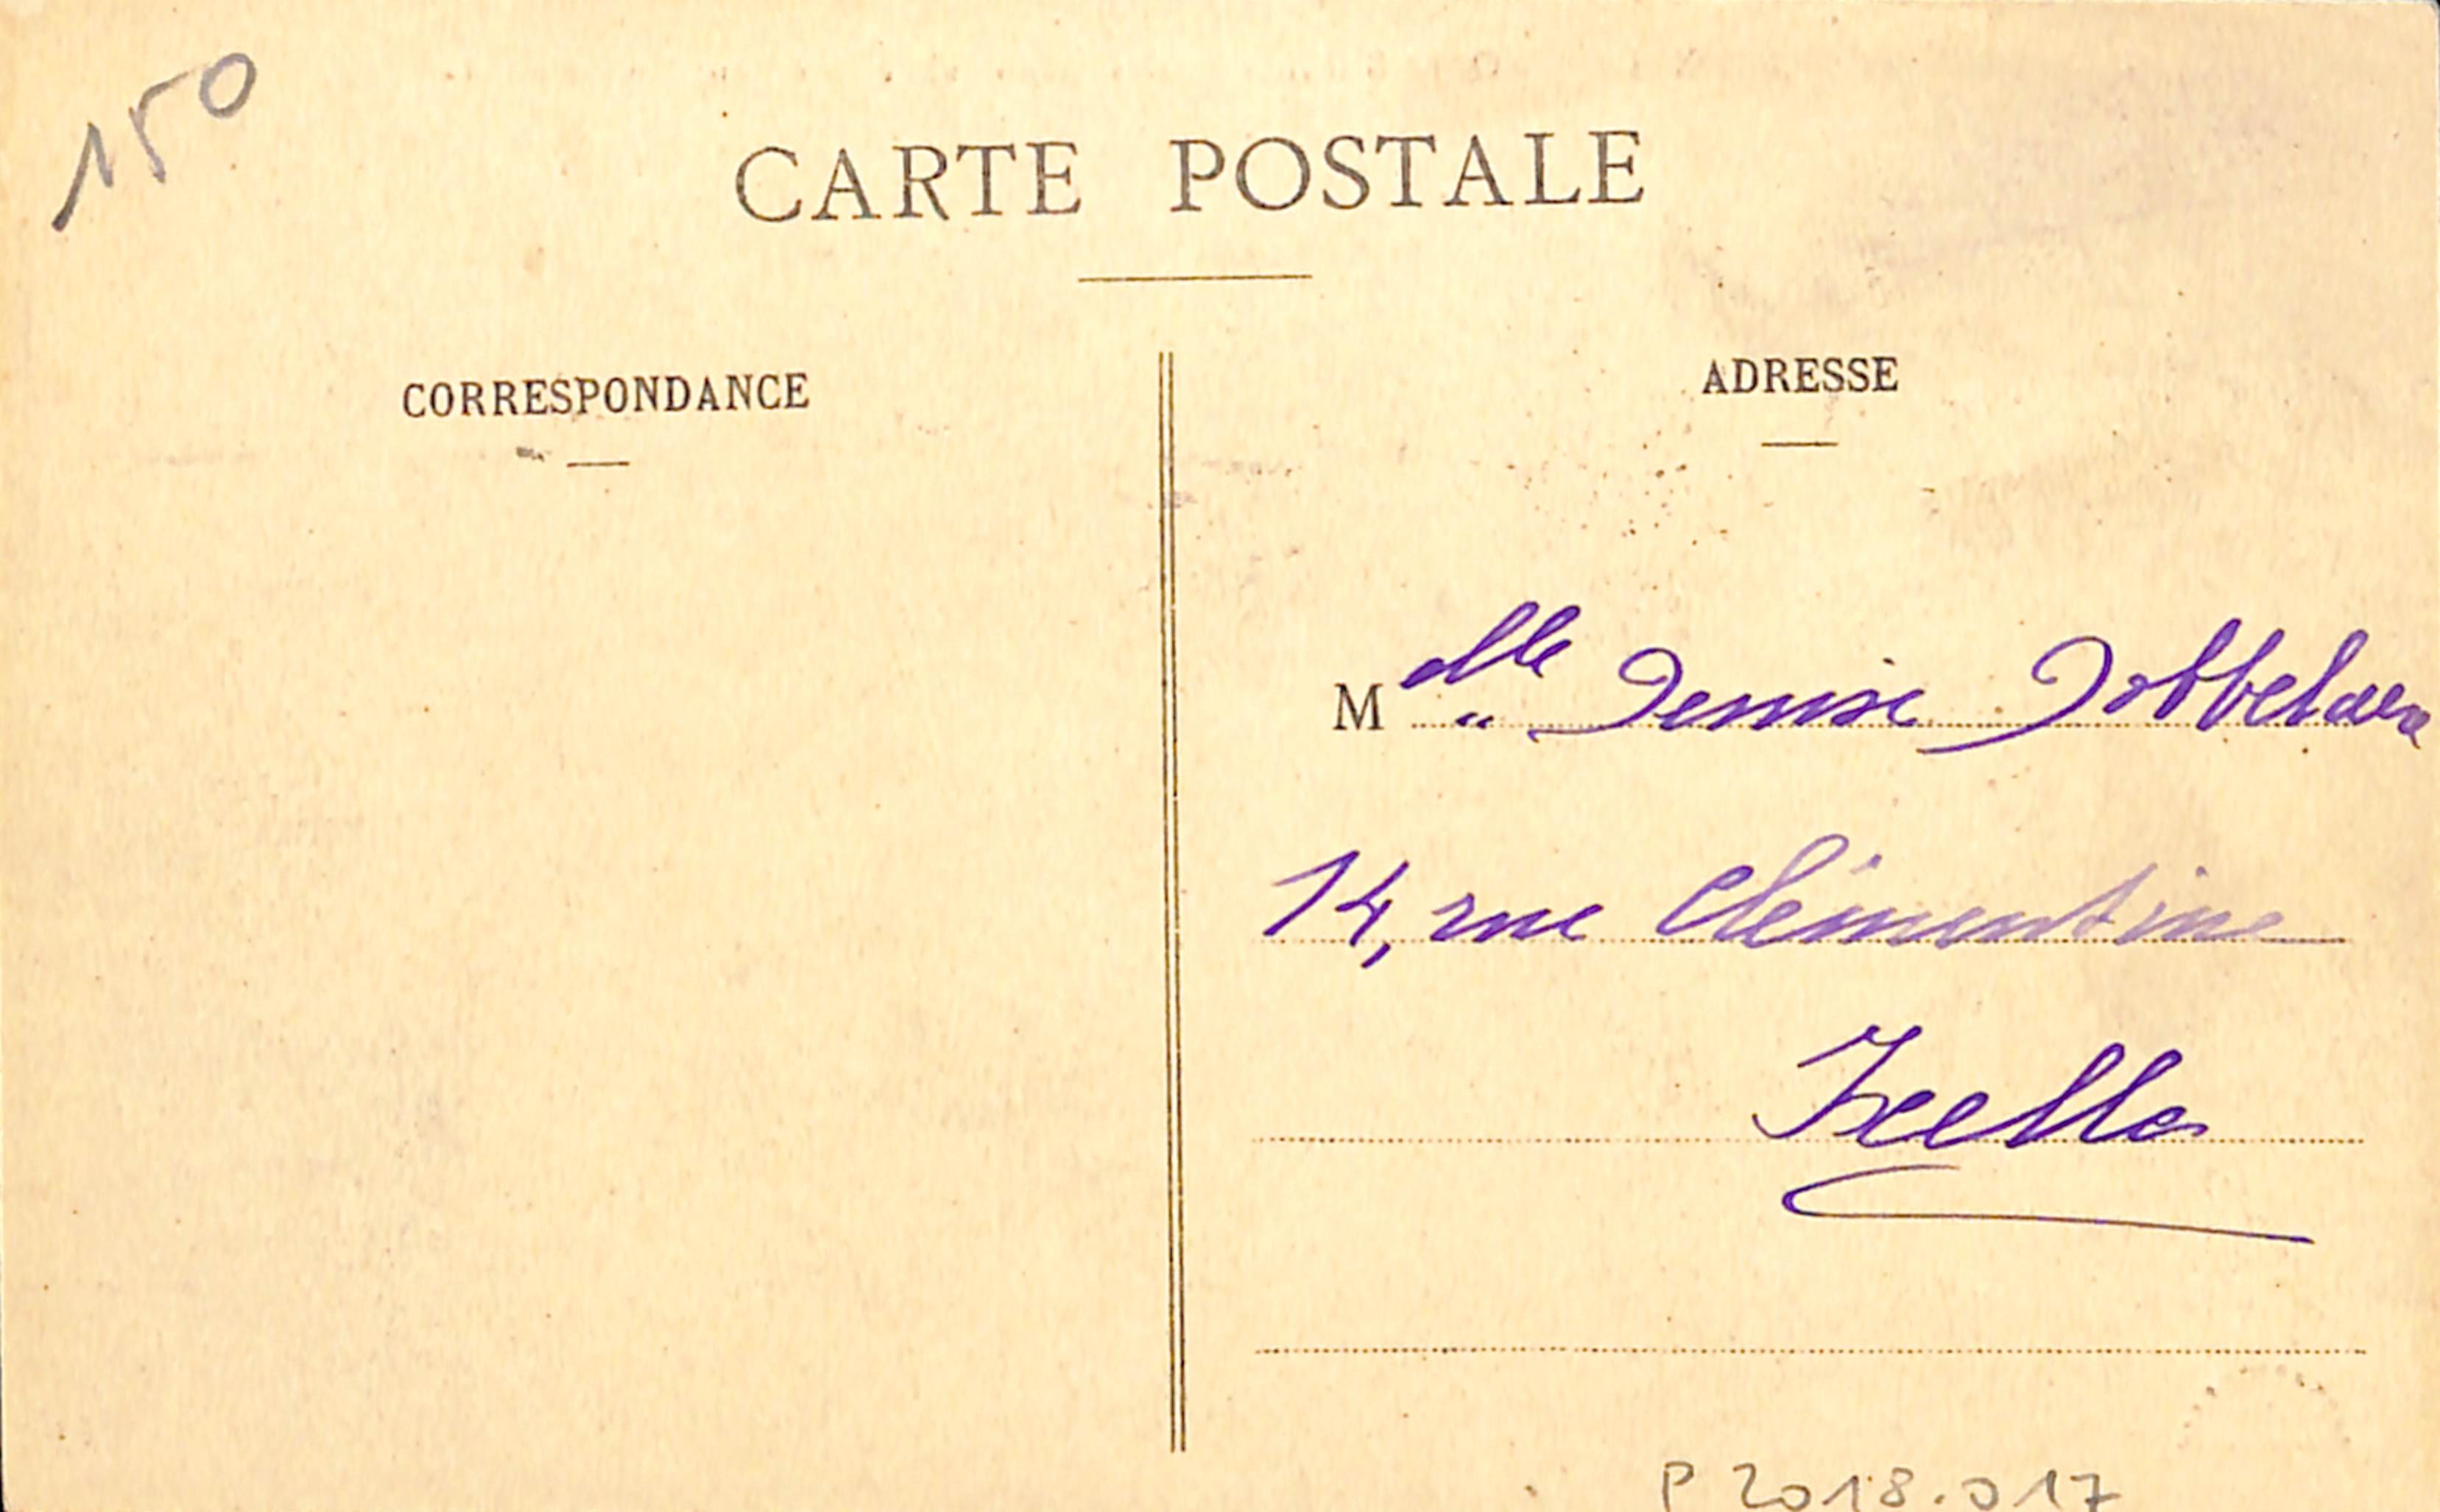 150
CARTE POSTALE
CORRESPONDANCE
ADRESSE
Melle Denise Dobbelaere
14, rue Clémentine
Ixelles
P 2018.017